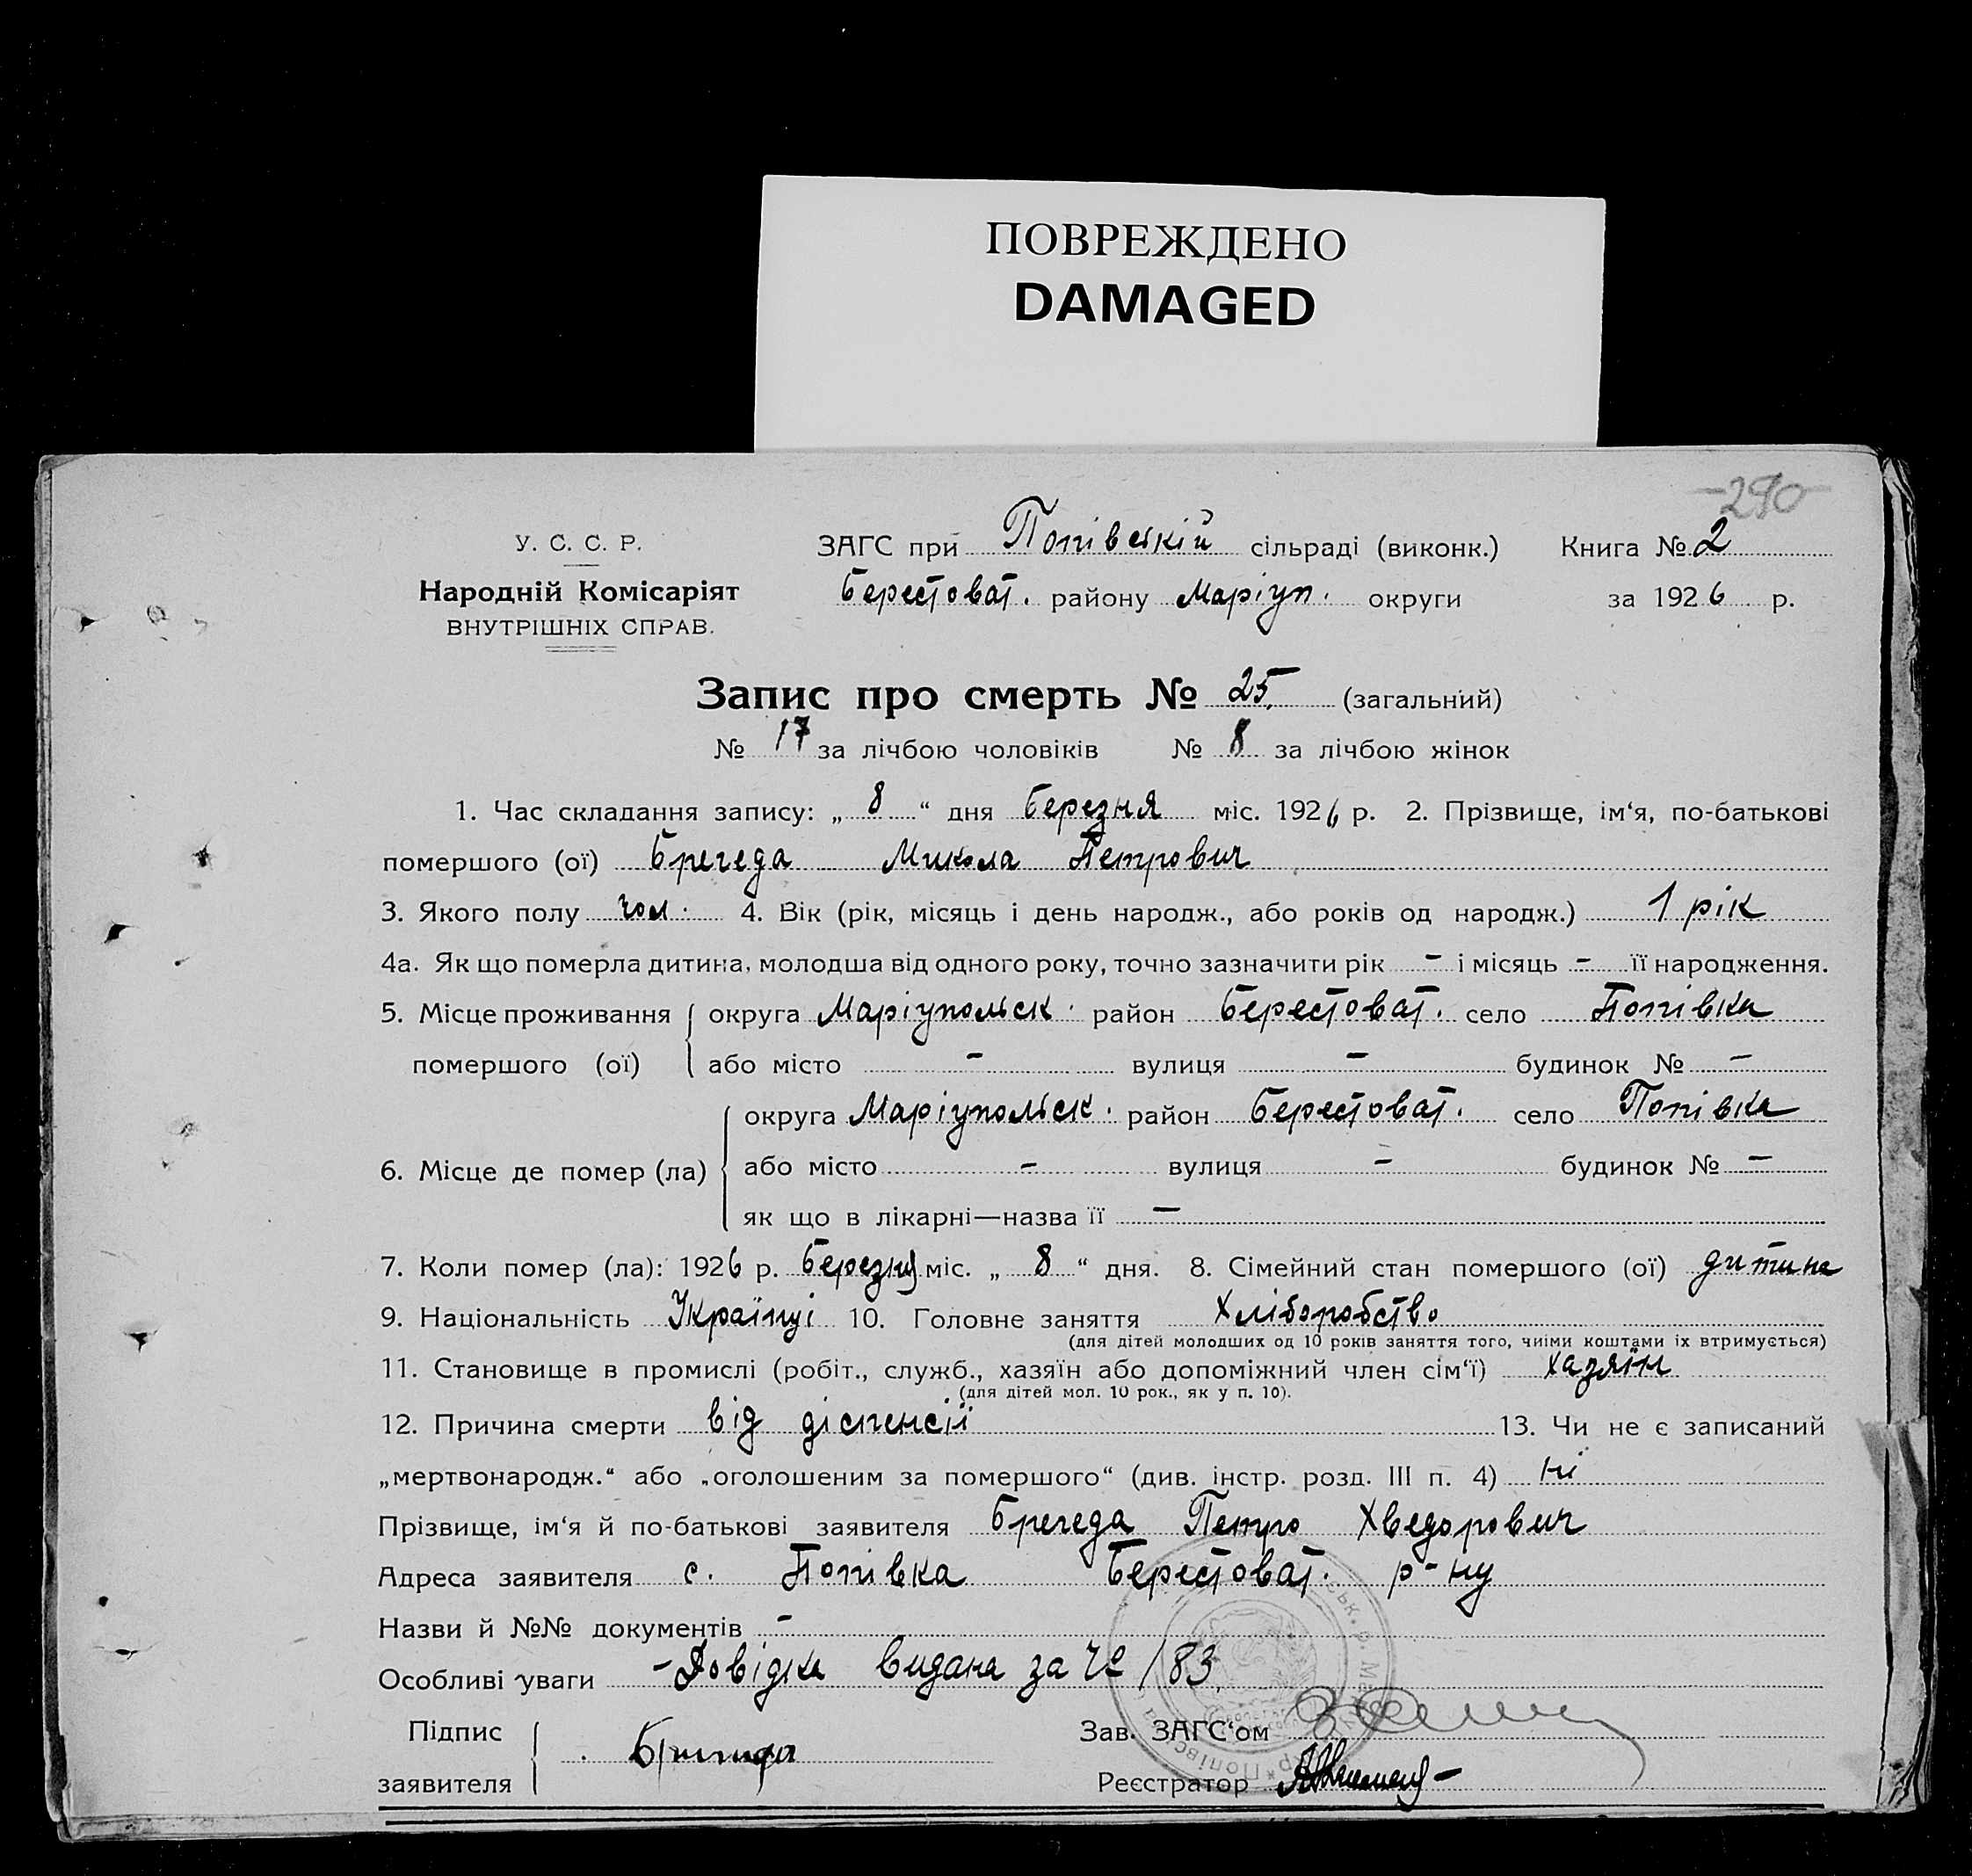 ПОВРЕЖДЕНО
DAMAGED
290
У. С. С. Р.
Народній Комісаріят
ВНУТРІШНІХ СПРАВ.
ЗАГС при Попівській сільраді (виконк.) Книга № 2
Берестоват. району Маріуп. округи за 1926 р.
Запис про смерть № 25. (загальний)
№ 17 за лічбою чоловіків № 8 за лічбою жінок
1. Час складання запису: „ 8 “ дня Березня міс. 1926 р. 2. Прізвище, ім‘я, по-батькові
помершого (ої) Брегеда Микола Петрович
3. Якого полу чол. 4. Вік (рік, місяць і день народж., або років од народж.) 1 рік
4а. Як що померла дитина, молодша від одного року, точно зазначити рік – і місяць – її народження.
5. Місце проживання округа Маріупольск. район Берестоват. село Попівка
помершого (ої) або місто – вулиця – будинок № –
округа Маріупольск. район Берестоват. село Попівка
6. Місце де помер (ла) або місто – вулиця – будинок № –
як що в лікарні—назва її –
7. Коли помер (ла): 1926 р. Березня міс. „ 8 “ дня. 8. Сімейний стан помершого (ої) дитина
9. Національність Українці 10. Головне заняття Хліборобство
(для дітей молодших од 10 років заняття того, чиїми коштами їх втримується)
11. Становище в промислі (робіт., служб., хазяїн або допоміжний член сім‘ї) хазяїн
(для дітей мол. 10 рок., як у п. 10).
12. Причина смерти від діспенсії 13. Чи не є записаний
„мертвонародж.“ або „оголошеним за помершого“ (див. інстр. розд. III п. 4) ні
Прізвище, ім‘я й по-батькові заявителя Брегеда Петро Хведорович
Адреса заявителя с. Попівка Берестоват. р-ну
Назви й №№ документів –
Особливі уваги – Довідка видана за № 183.
Підпис Зав. ЗАГС‘ом
заявителя Реєстратор